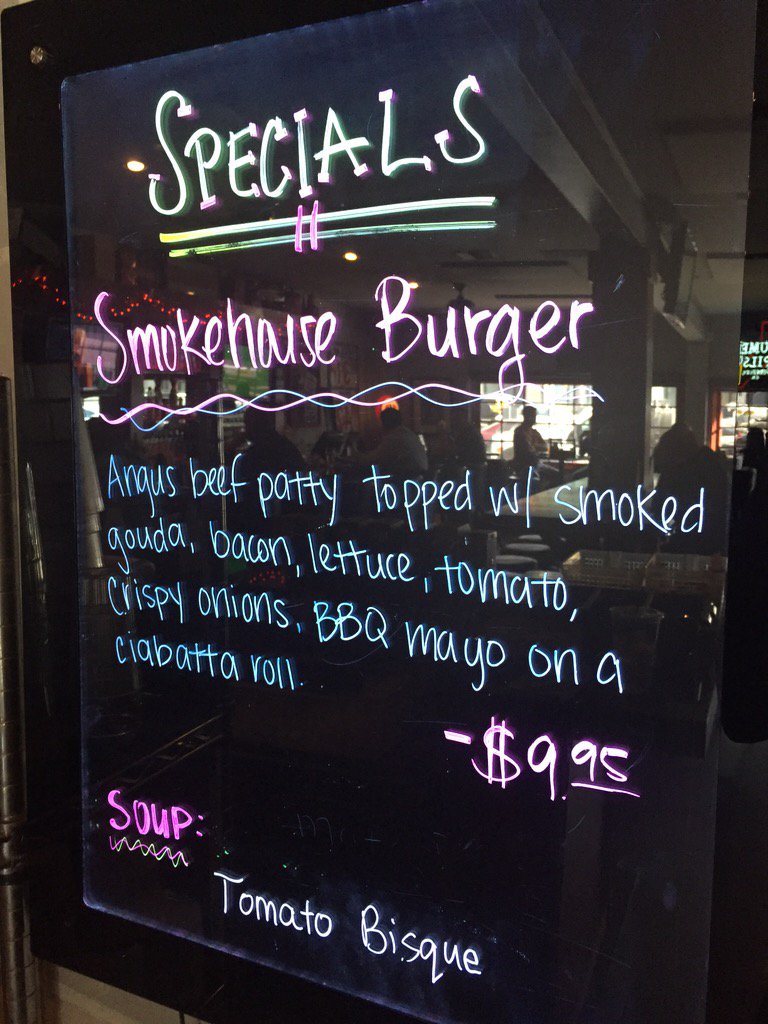 SPECIALS
Smokehouse Burger
Angus beef patty topped w/ smoked
gouda, bacon, lettuce, tomato,
crispy onions, BBQ mayo on a
ciabatta roll.
-$9.95
SOUP:
Tomato Bisque